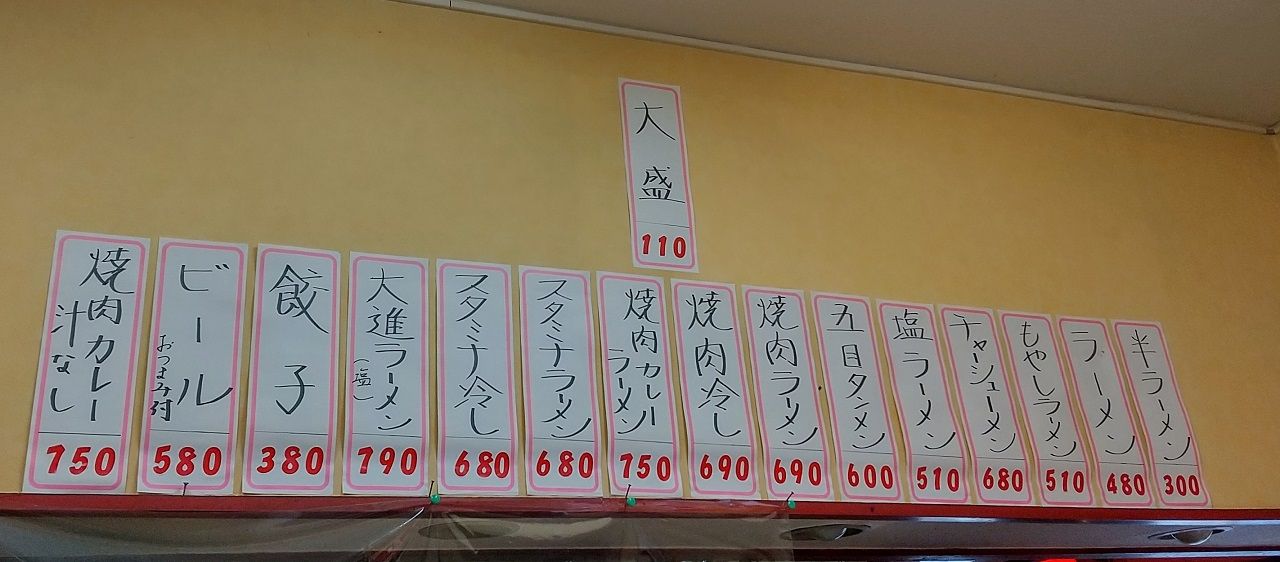 大盛
110
半ラーメン
300
ラーメン
480
もやしラーメン
510
チャーシューメン
680
塩ラーメン
510
五目タンメン
600
焼肉ラーメン
690
焼肉冷し
690
焼肉カレー
ラーメン
750
スタミナラーメン
680
スタミナ冷し
680
大進ラーメン
(塩)
790
餃子
380
ビール
おつまみ付
580
焼肉カレー
汁なし
750